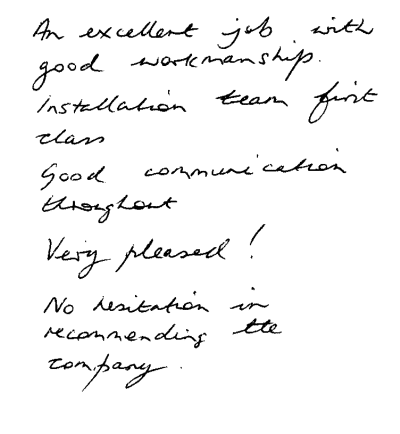 An excellent job with
good workmanship.
Installation team first
class
Good communication
throughout
Very pleased!
No hesitation in
recommending the
company.